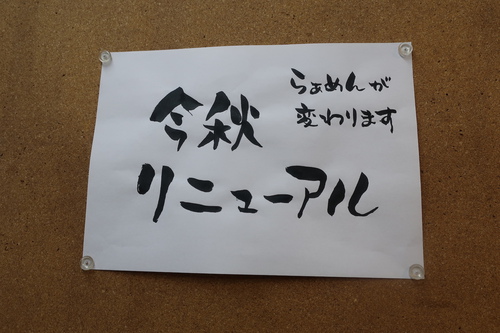 今秋
リニューアル
らぁめんが
変わります